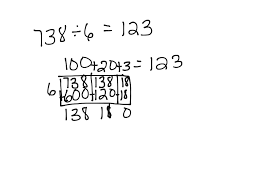 738 ÷ 6 = 123
100+20+3 = 123
6 738 138 18
-600 -120 -18
138 18 0